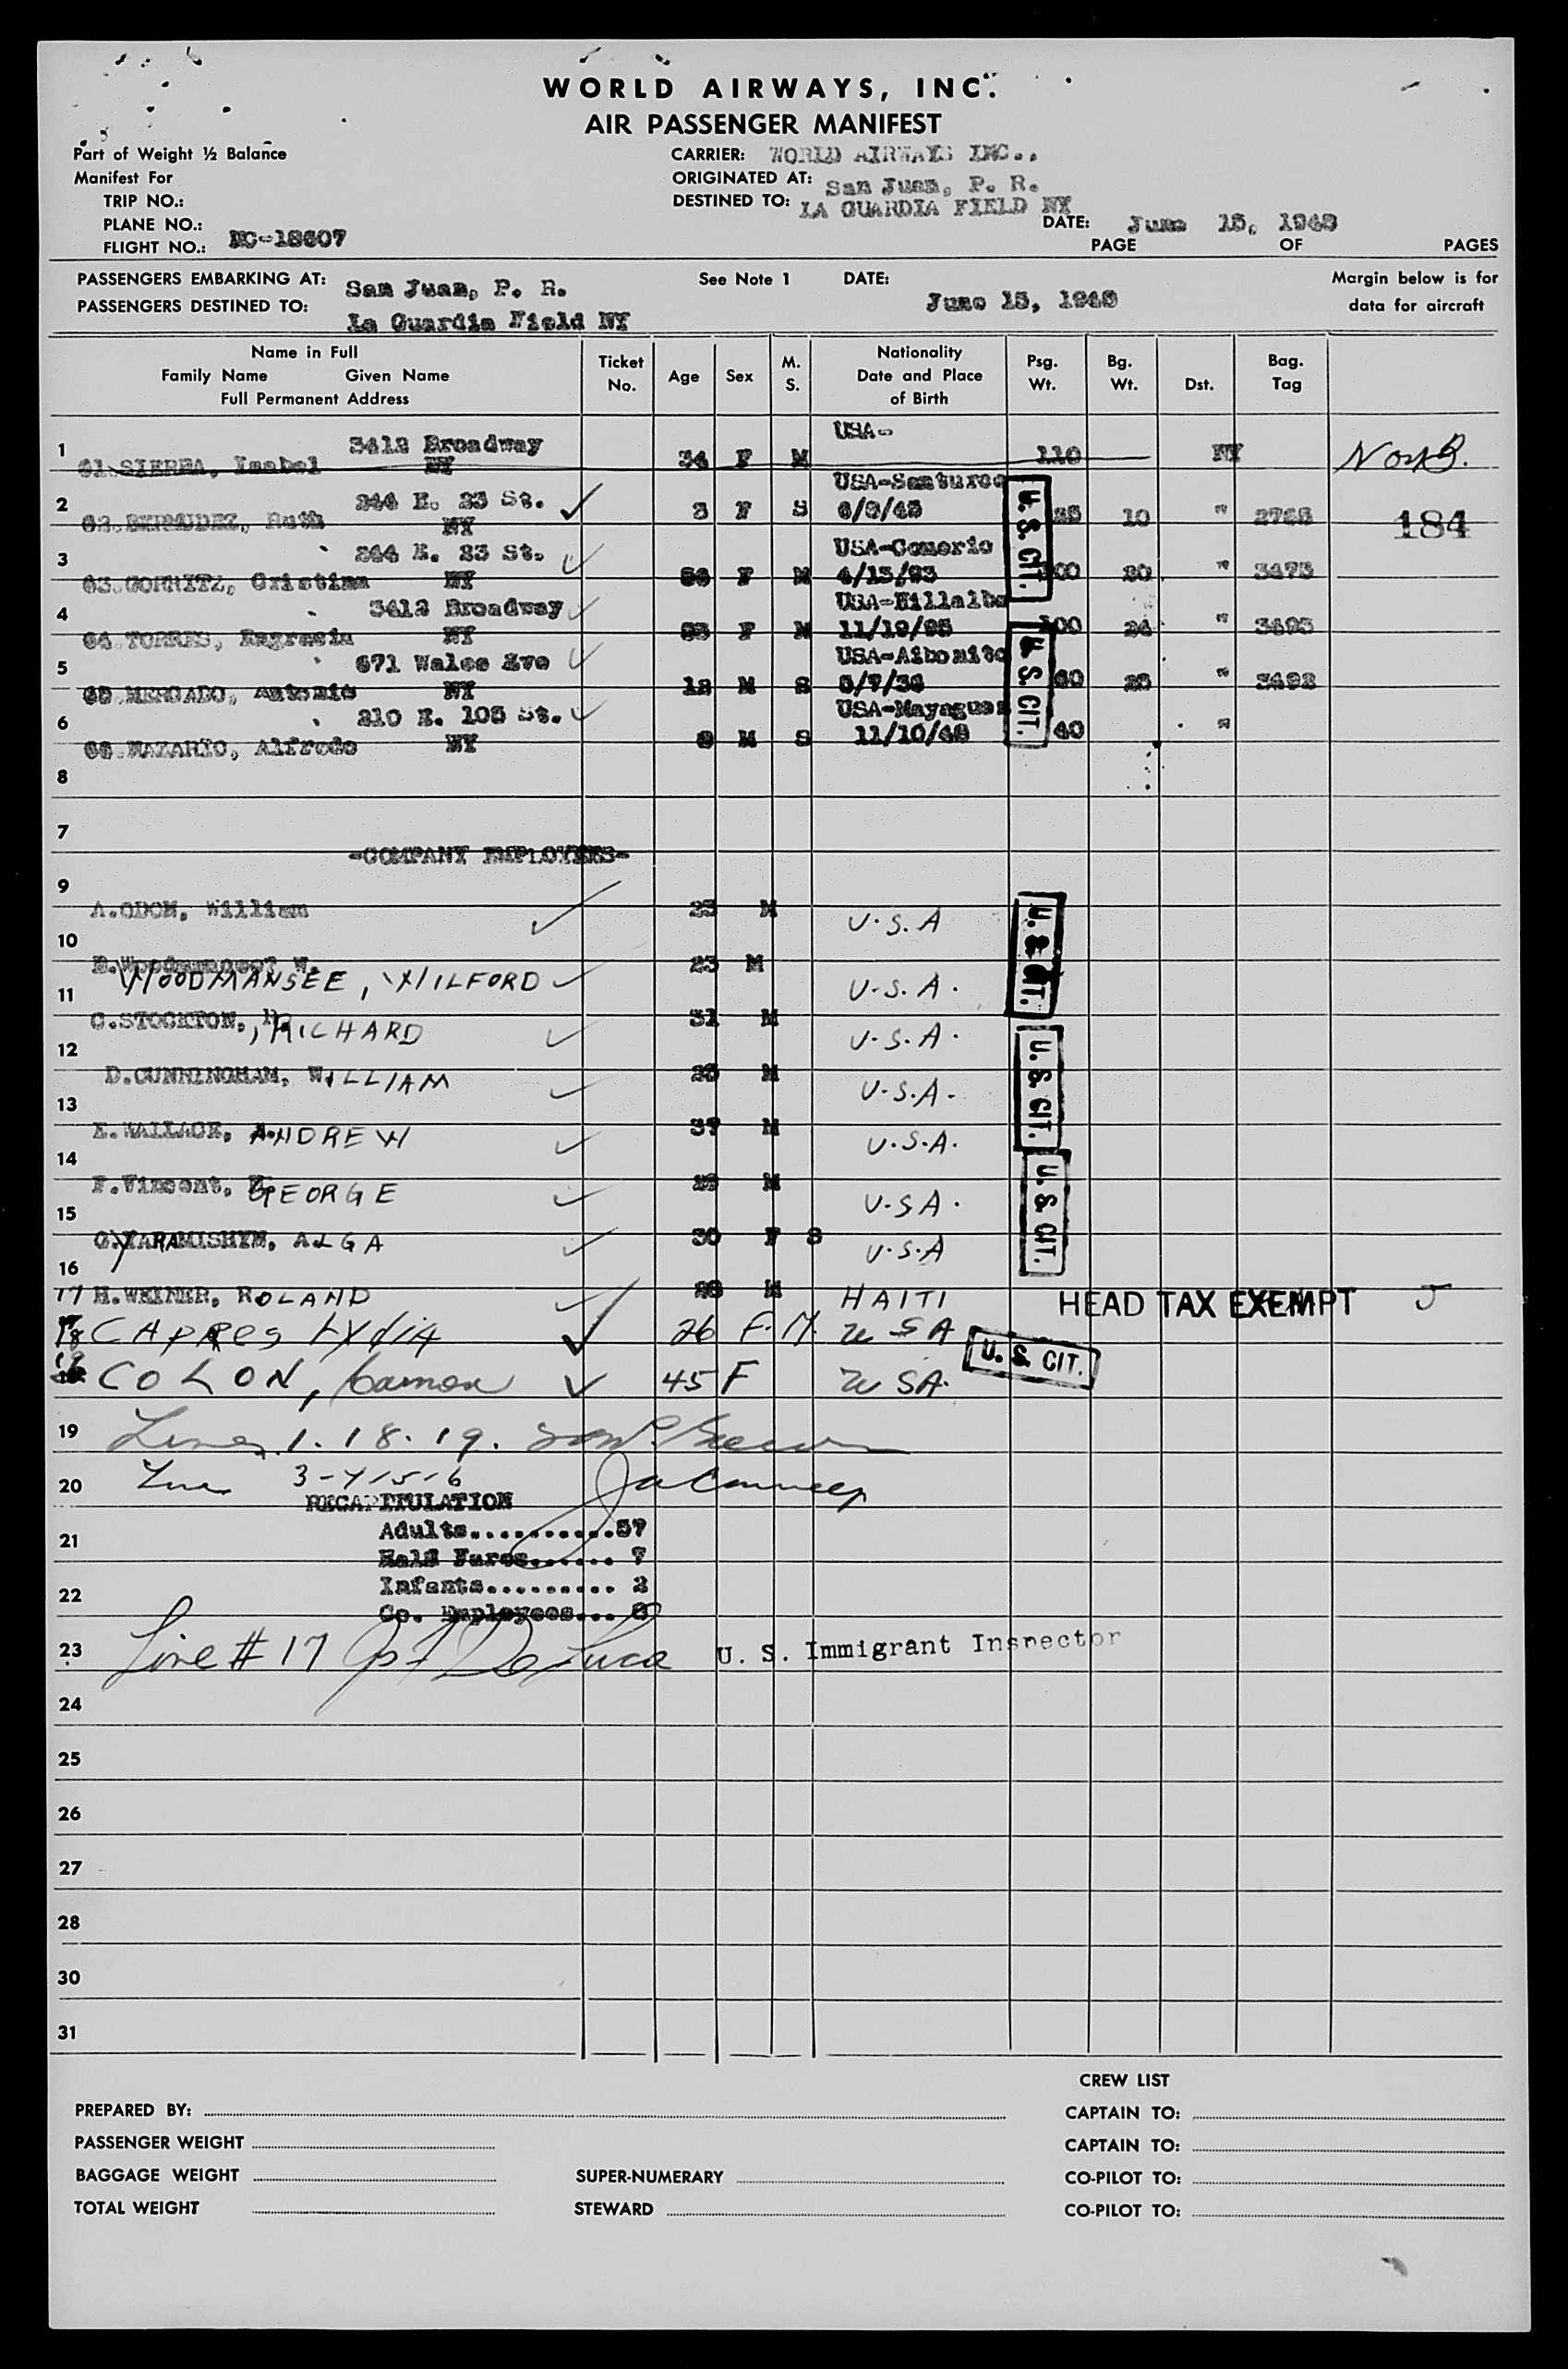 WORLD AIRWAYS, INC.
AIR PASSENGER MANIFEST
Part of Weight ½ Balance
Manifest For
TRIP NO.:
PLANE NO.:
FLIGHT NO.: NC-18607
CARRIER: WORLD AIRWAYS INC..
ORIGINATED AT: San Juan, P. R.
DESTINED TO: LA GUARDIA FIELD NY
DATE: June 15, 1948
PAGE OF PAGES
PASSENGERS EMBARKING AT: San Juan, P. R.
PASSENGERS DESTINED TO: La Guardia Field NY
See Note 1 DATE: June 15, 1948
Margin below is for
data for aircraft
Name in Full
Family Name Given Name
Full Permanent Address
Ticket No.
Age
Sex
M. S.
Nationality
Date and Place
of Birth
Psg. Wt.
Bg. Wt.
Dst.
Bag. Tag
1 3412 Broadway USA-
61.SIERRA, Isabel NY 34 F M 110 NY
2 244 E. 23 St. ✓ USA-Santurce
62.BERMUDEZ, Ruth NY 3 F S 10 " 184
3 244 E. 23 St. ✓ USA-Comerio
63.GORRITZ, Cristina NY F M 4/13/93 20 " 3473
4 3412 Broadway ✓ USA-Villalba
64 TORRES, NY F M 11/19/95 24 "
5 671 Wales Ave ✓ USA-Aibonito
65 MERCADO, Antonio NY 12 M S 25 "
6 210 E. 103 St. ✓ USA-Mayaguez
66.NAZARIO, Alfredo NY M S 11/10/48 40 "
U. S. CIT.
U. S. CIT.
8
7
-COMPANY EMPLOYEES-
9
A.ODOM, William ✓ 23 M U.S.A
10
B. W. 23 M
WOODMANSEE, WILFORD ✓ U.S.A.
11
C.STOCKTON, RICHARD ✓ 31 M U.S.A.
12
D.CUNNINGHAM, WILLIAM ✓ M U.S.A.
13
E.WALLACE, ANDREW ✓ 37 M U.S.A.
14
F.Vincent, GEORGE ✓ M U.S.A.
15
G.YARAMISHYN, ALGA ✓ 30 F S U.S.A
16
17 H.WEINER, ROLAND ✓ 28 M HAITI HEAD TAX EXEMPT
U. S. CIT.
U. S. CIT.
U. S. CIT.
18 Lydia ✓ 26 F. M. USA
U. S. CIT.
19 COLON, ✓ 45 F USA.
19 Lines 1. 18. 19.
20 Line 3-4-5-6
RECAPITULATION
21 Adults...........57
Half Fares...... 7
22 Infants......... 2
Co. Employees... 8
23 Line # 17 De Luca U. S. Immigrant Inspector
24
25
26
27
28
30
31
CREW LIST
PREPARED BY:
PASSENGER WEIGHT
BAGGAGE WEIGHT
TOTAL WEIGHT
SUPER-NUMERARY
STEWARD
CAPTAIN TO:
CAPTAIN TO:
CO-PILOT TO:
CO-PILOT TO: